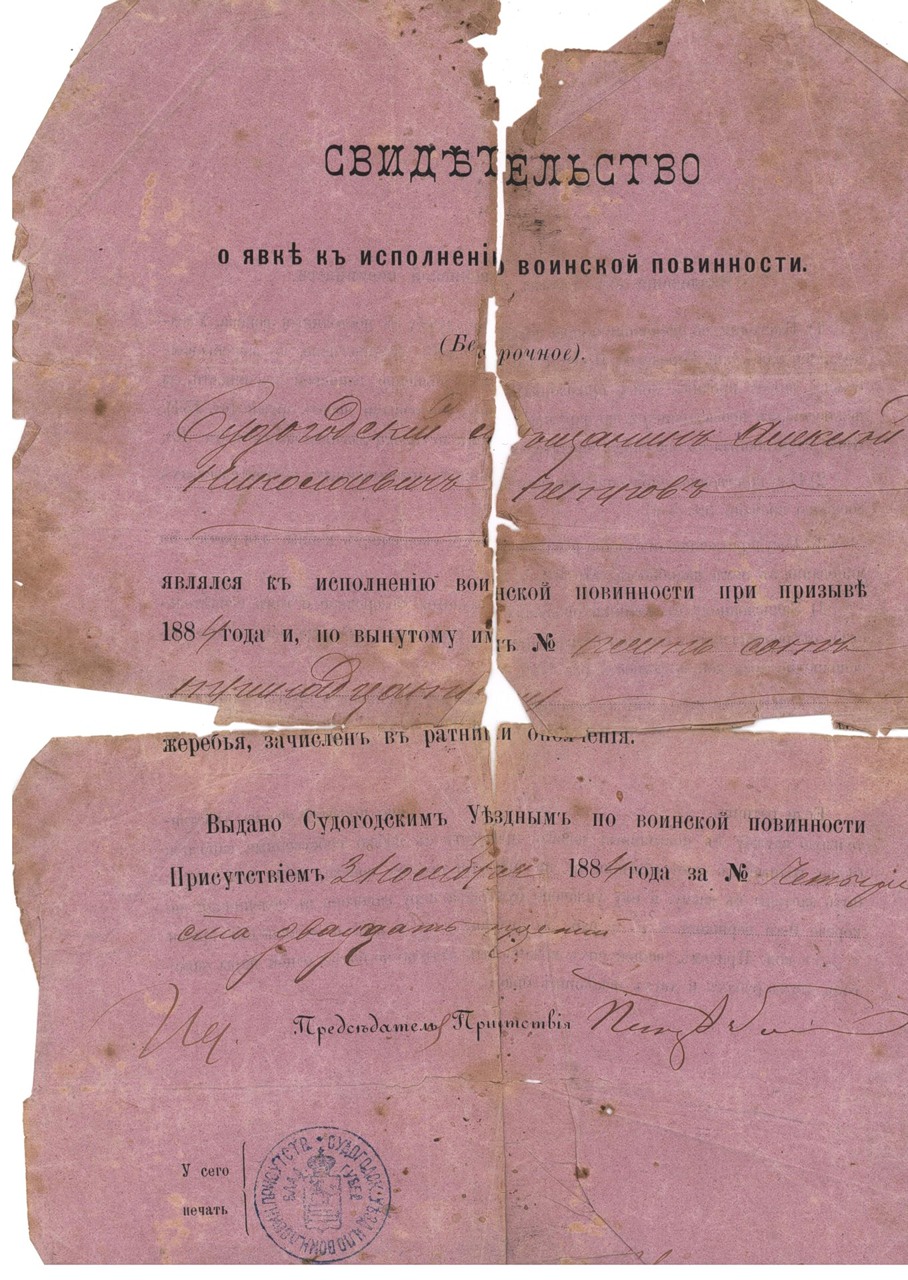 СВИДѢТЕЛЬСТВО
о явкѣ къ исполненію воинской повинности.
(Безсрочное).
Судогодскій мѣщанинъ Алексѣй
Николаевичъ Петровъ
являлся къ исполненію воинской повинности при призывѣ
1884 года и, по вынутому имъ № пять сотъ
тринадцатому
жеребья, зачисленъ въ ратники ополченія.
Выдано Судогодскимъ Уѣзднымъ по воинской повинности
Присутствіемъ 3 Ноября 1884 года за № Четыре
ста двадцать третій
Предсѣдатель Присутствія
У сего
печать
СУДОГОДСК. УѢЗД. ПО ВОИН. ПОВИН. ПРИСУТСТВ.
ВЛАД. ГУБЕР.